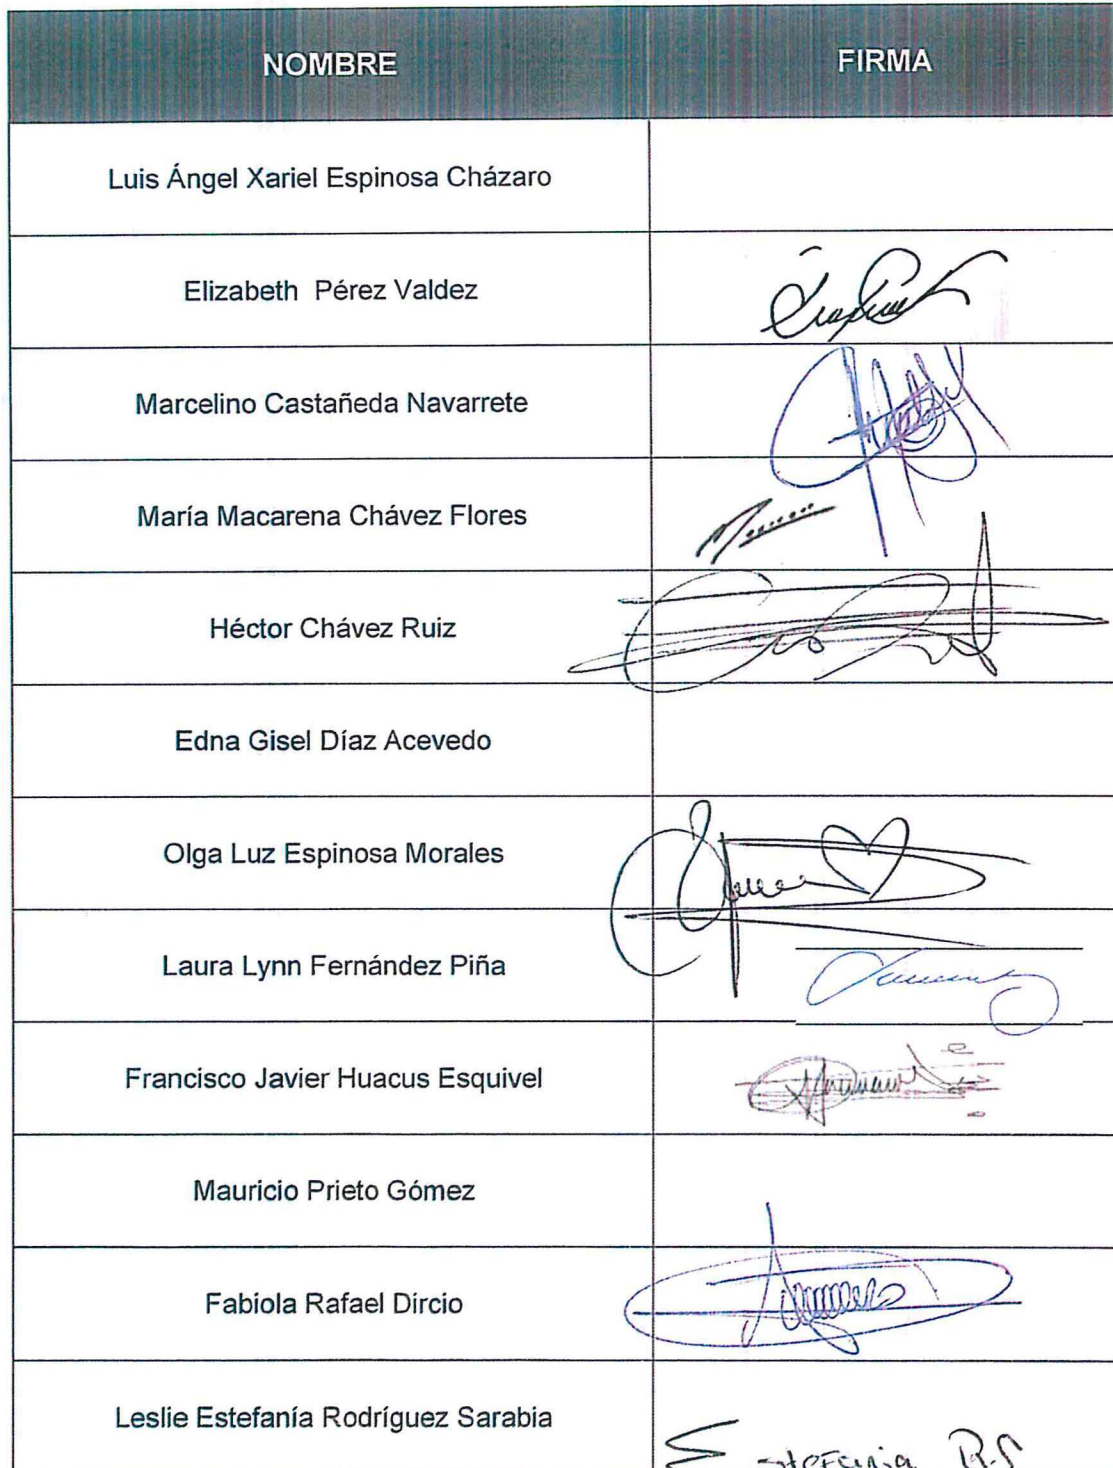 NOMBRE FIRMA
Luis Ángel Xariel Espinosa Cházaro
Elizabeth Pérez Valdez
Marcelino Castañeda Navarrete
María Macarena Chávez Flores
Héctor Chávez Ruiz
Edna Gisel Díaz Acevedo
Olga Luz Espinosa Morales
Laura Lynn Fernández Piña
Francisco Javier Huacus Esquivel
Mauricio Prieto Gómez
Fabiola Rafael Dircio
Leslie Estefanía Rodríguez Sarabia